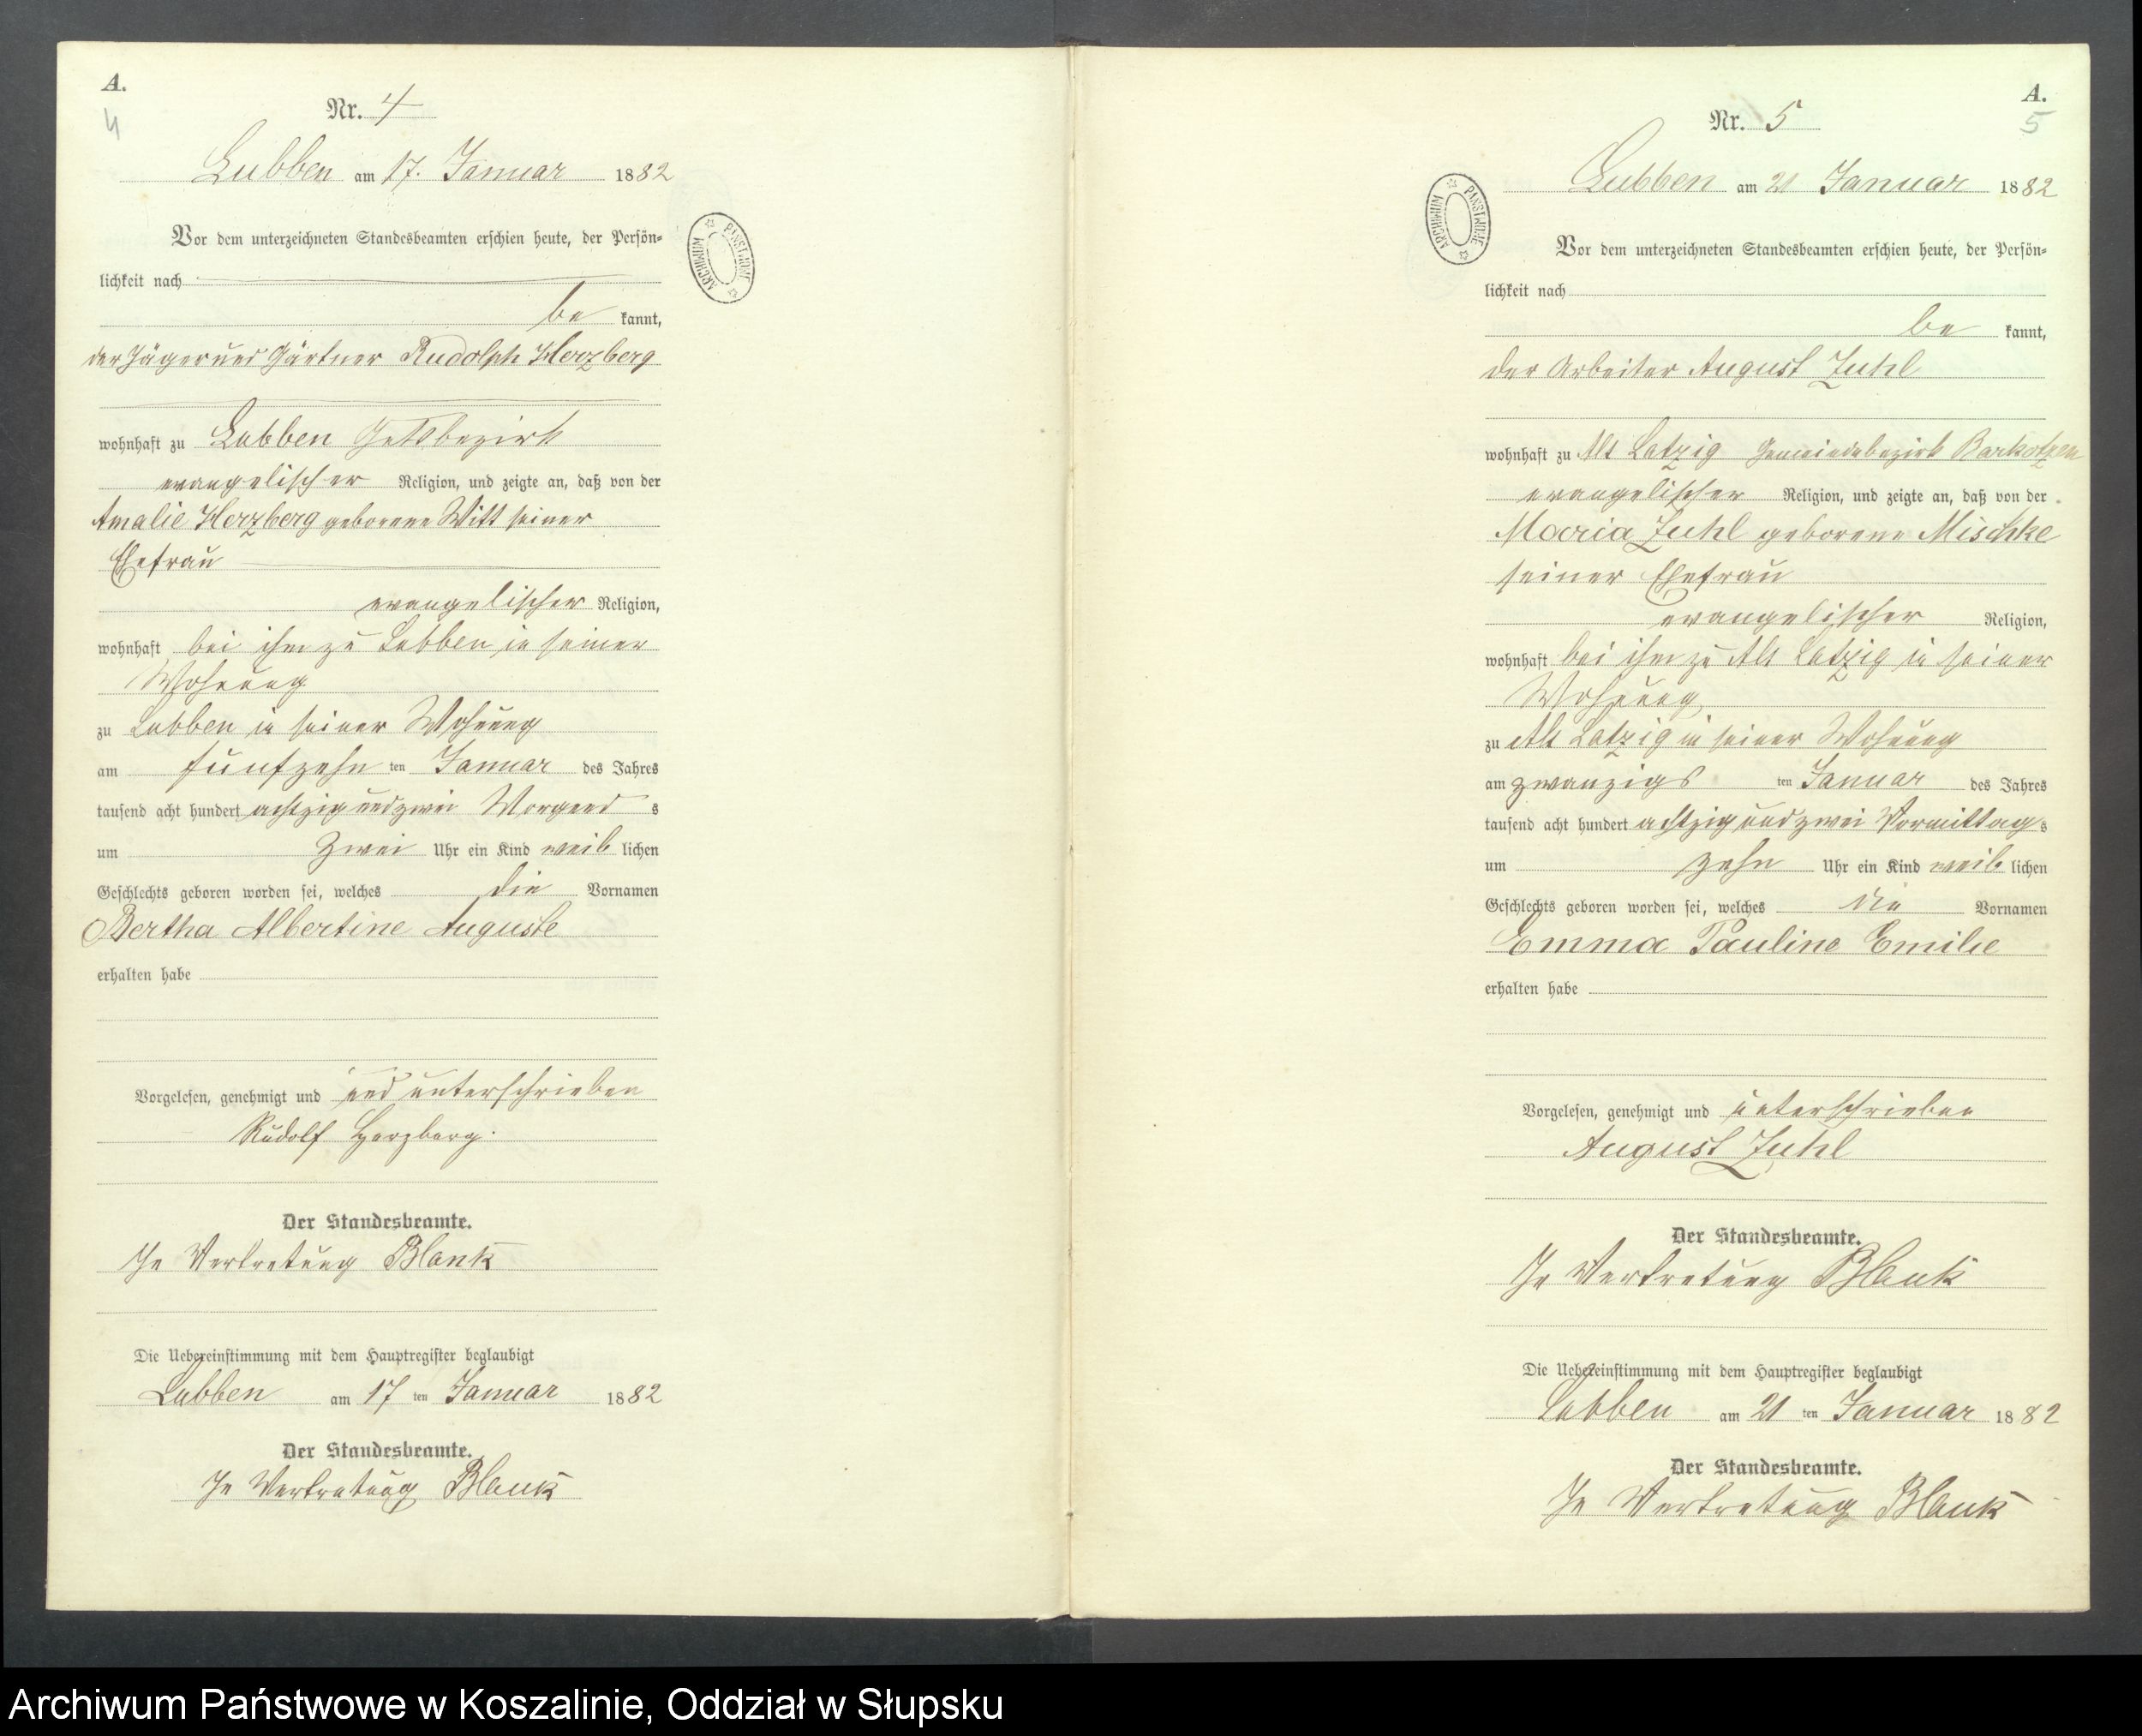 A.
4
Nr. 4
Lubben am 17. Januar 1882
Vor dem unterzeichneten Standesbeamten erschien heute, der Persön-
lichkeit nach
be kannt,
der Jäger und Gärtner Rudolph Herzberg
wohnhaft zu Lubben Gutsbezirk
evangelischer Religion, und zeigte an, daß von der
Amalie Herzberg geborene Witt seiner
Ehefrau
evangelischer Religion,
wohnhaft bei ihm zu Lubben in seiner
Wohnung
zu Lubben in seiner Wohnung
am fünfzehn ten Januar des Jahres
tausend acht hundert achtzig und zwei Morgend s
um Zwei Uhr ein Kind weib lichen
Geschlechts geboren worden sei, welches die Vornamen
Bertha Albertine Auguste
erhalten habe
Vorgelesen, genehmigt und und unterschrieben
Rudolf Herzberg.
Der Standesbeamte.
In Vertretung Blank
Die Uebereinstimmung mit dem Hauptregister beglaubigt
Lubben am 17 ten Januar 1882
Der Standesbeamte.
In Vertretung Blank
ARCHIWUM PAŃSTWOWE
A.
5
Nr. 5
Lubben am 21 Januar 1882
Vor dem unterzeichneten Standesbeamten erschien heute, der Persön-
lichkeit nach
be kannt,
der Arbeiter August Zuhl
wohnhaft zu Alt Latzig Gemeindebezirk Barkotzen
evangelischer Religion, und zeigte an, daß von der
Maria Zuhl geborene Mischke
seiner Ehefrau
evangelischer Religion,
wohnhaft bei ihm zu Alt Latzig in seiner
Wohnung
zu Alt Latzig in seiner Wohnung
am zwanzigs ten Januar des Jahres
tausend acht hundert achtzig und zwei Vormittag s
um zehn Uhr ein Kind weib lichen
Geschlechts geboren worden sei, welches die Vornamen
Emma Pauline Emilie
erhalten habe
Vorgelesen, genehmigt und unterschrieben
August Zuhl
Der Standesbeamte.
In Vertretung Blank
Die Uebereinstimmung mit dem Hauptregister beglaubigt
Lubben am 21 ten Januar 1882
Der Standesbeamte.
In Vertretung Blank
ARCHIWUM PAŃSTWOWE
Archiwum Państwowe w Koszalinie, Oddział w Słupsku